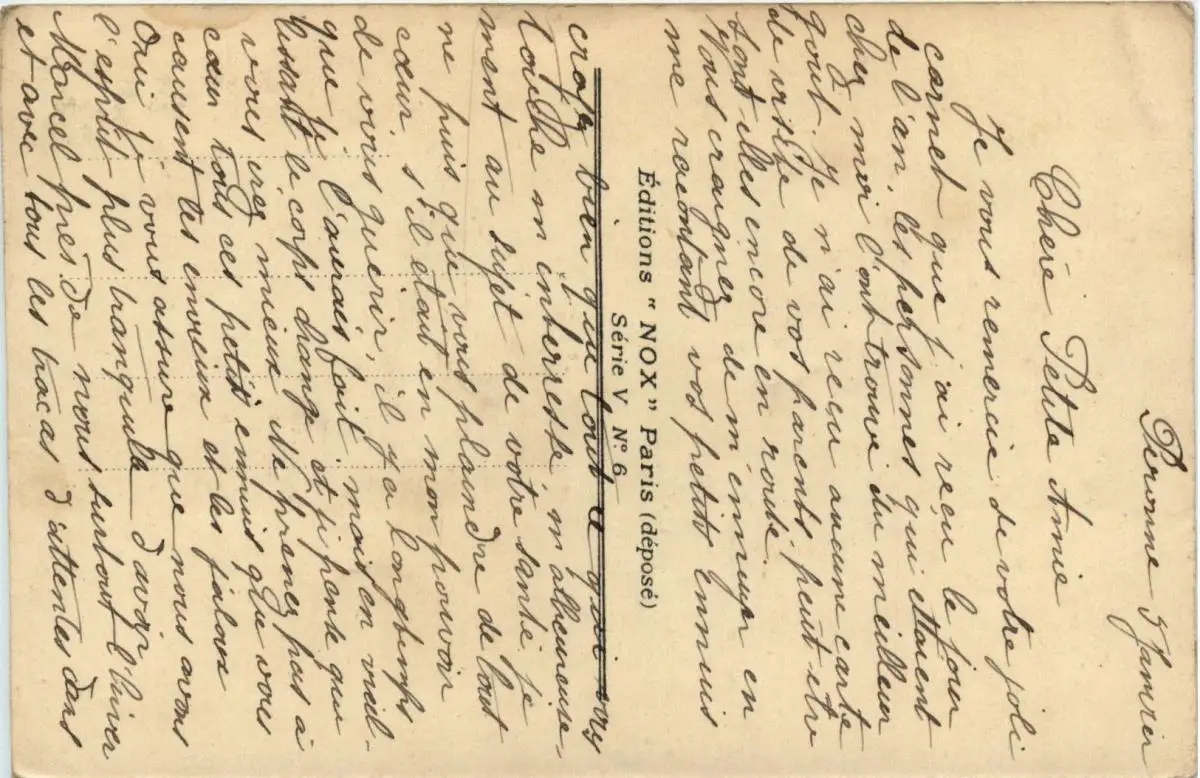 Peronne 5 Janvier
Chère Petite Amie
Je vous remercie de votre joli
carnet que j'ai reçu le jour
de l'an, les personnes qui étaient
chez moi l'ont trouvé du meilleur
goût. Je n'ai reçu aucune carte
de visite de vos parents peut etre
sont elles encore en route.
Vous craignez de m'ennuyer en
me racontant vos petits Ennuis
Éditions " NOX " Paris (déposé)
Série V Nº 6
croyez bien que tout ce qui vous
touche m'interresse, malheureuse-
ment au sujet de vôtre santé je
ne puis que vous plaindre de tout
cœur s'il était en mon pouvoir
de vous guerir, il y a longtemps
que je l'aurais fait mais en vieil-
lissant le corps change et je pense que
vous irez mieux Ne prenez pas à
cœur tous ces petits ennuis que vous
causent les envieux et les jaloux
Oui je vous assure que nous avons
l'esprit plus tranquille d'avoir
Marcel près de nous surtout l'hiver
et avec tous les tracas d'attentes dans